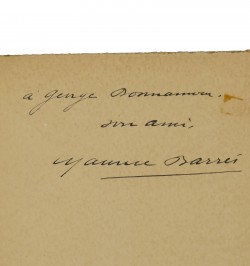 a George Bonnamour.
son ami,
Maurice Barrès